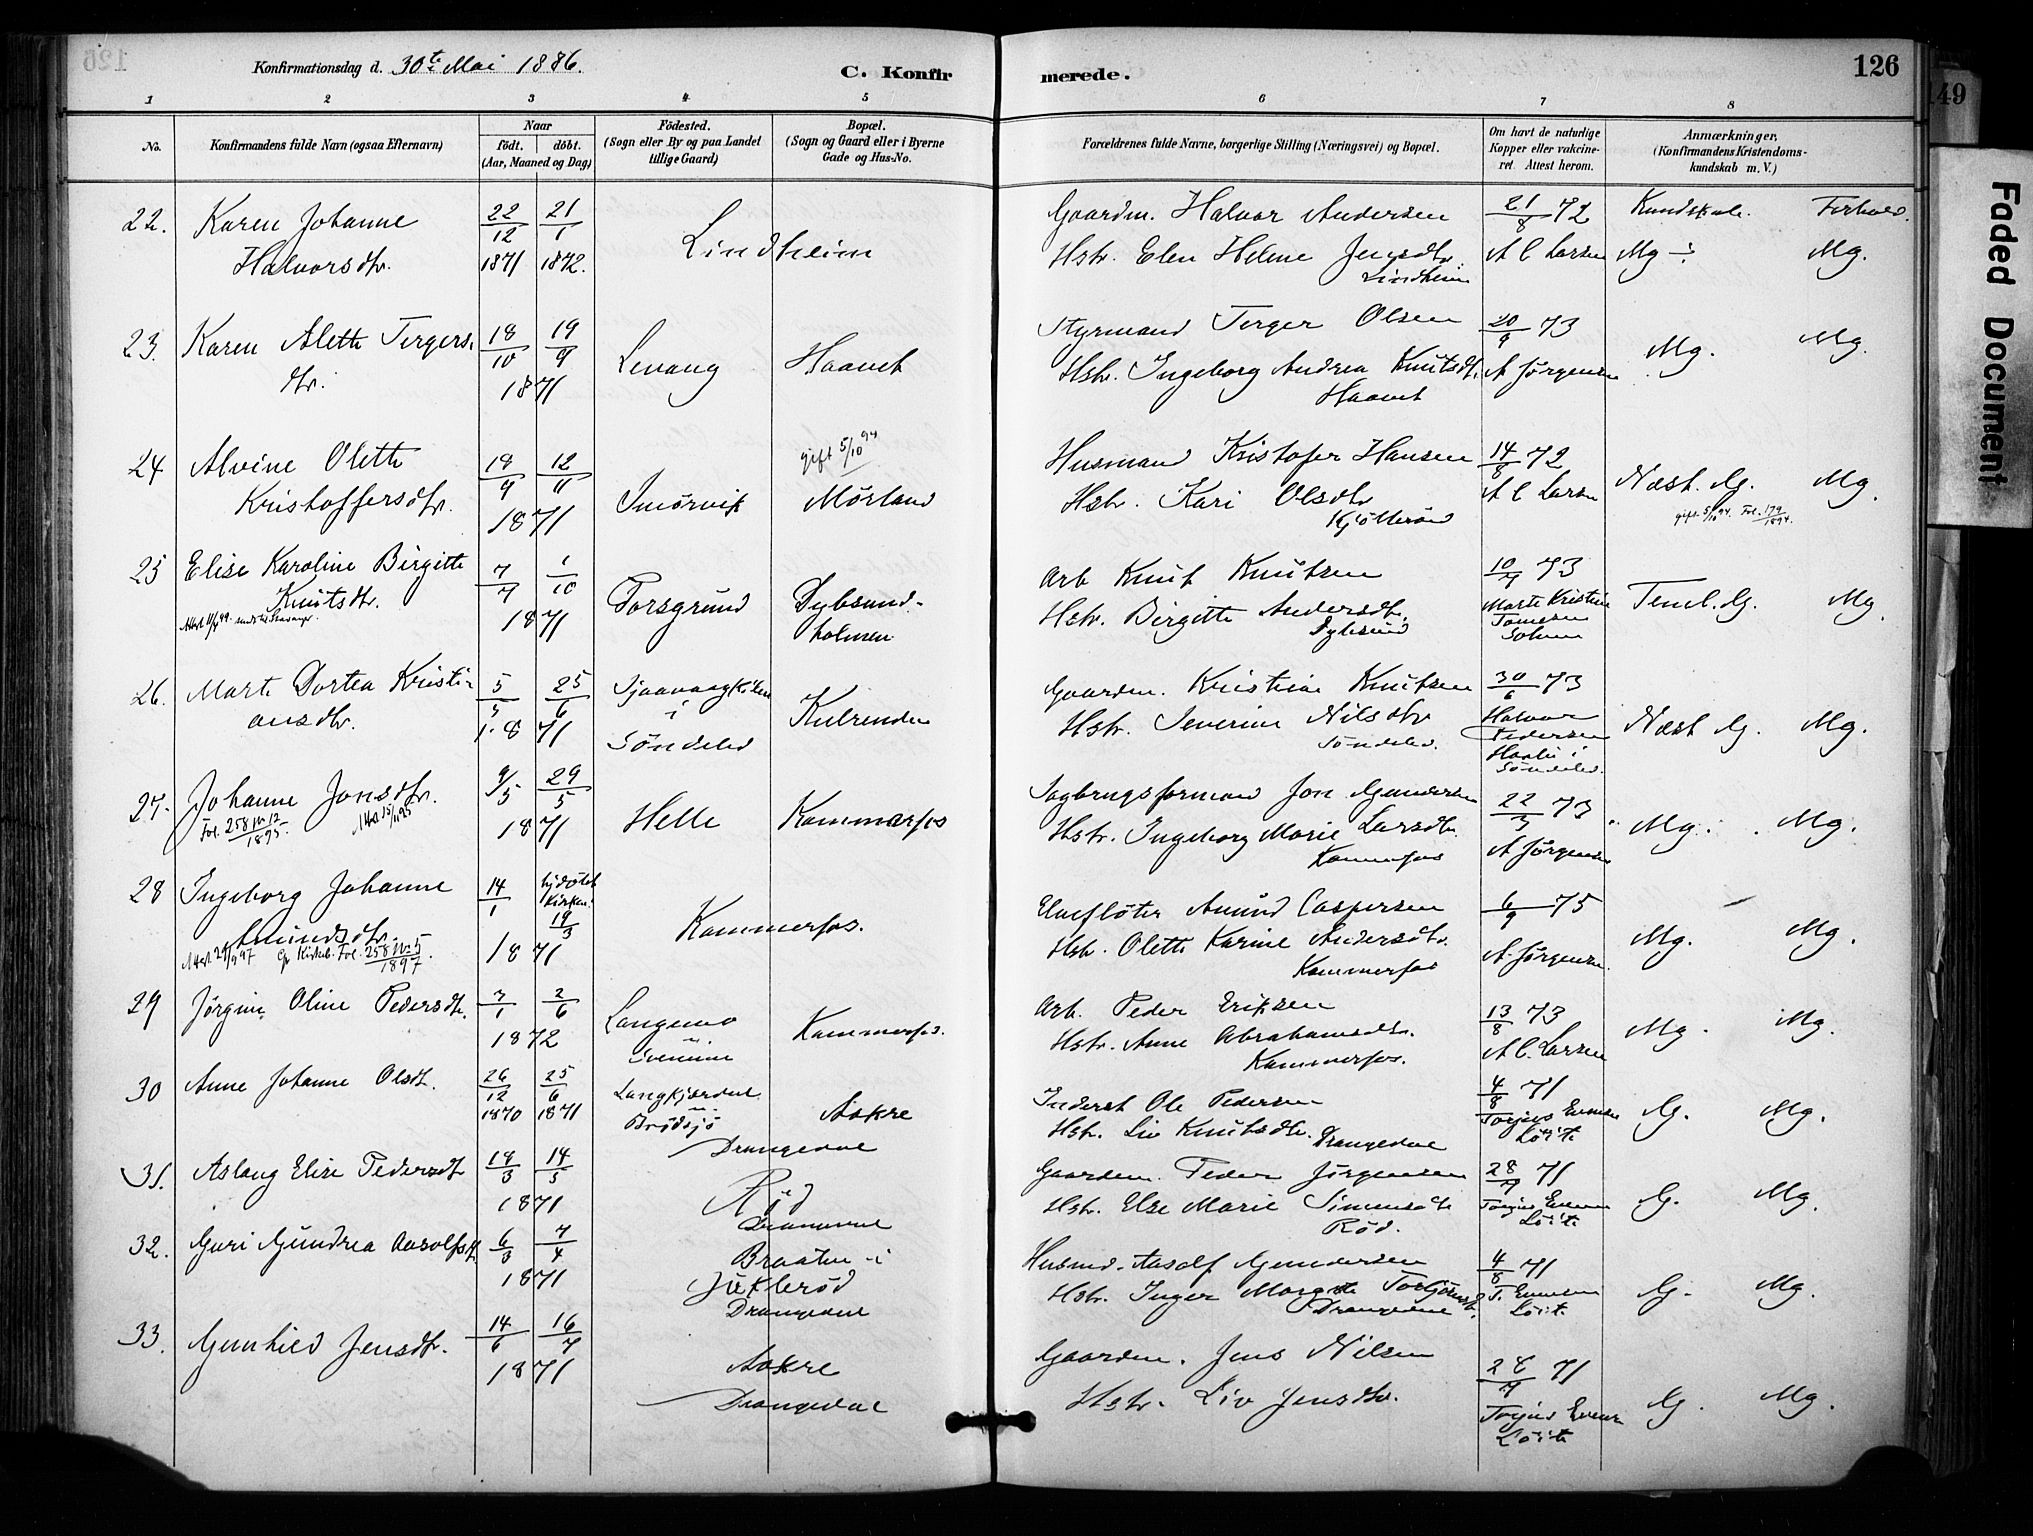 Konfirmationsdag d. 30te Mai 1886.
C. Konfirmerede.
126
149
1 2 3 4 5 6 7 8
No.
Konfirmandens fulde Navn (ogsaa Efternavn)
Naar
født. døbt.
(Aar, Maaned og Dag)
Fødested.
(Sogn eller By og paa Landet
tillige Gaard)
Bopæl.
(Sogn og Gaard eller i Byerne
Gade og Hus-No.
Forældrenes fulde Navne, borgerlige Stilling (Næringsvei) og Bopæl.
Om havt de naturlige
Kopper eller vakcine-
ret. Attest herom.
Anmærkninger,
(Konfirmandens Kristendoms-
kundskab m. V.)
Faded Document
22. Karen Johanne 22/12 21/1 Lindheim Gaardm. Halvor Andersen 21/8 72 Kundskab. Forhold.
Halvorsdtr. 1871 1872. Hstr. Elen Helene Jensdtr. A C Larsen Mg ÷ Mg.
Lindheim
23. Karen Alette Tergers- 18/10 19/9 Levang Haavet Styrmand Terger Olsen 20/9 73 Mg. Mg.
dtr. 1871 Hstr. Ingeborg Andrea Knutsdtr. A Jørgensen
Haavet
24 Alvine Olette 18/9 12/11 gift 5/10 94 Husmand Kristofer Hansen 14/8 72
Kristoffersdtr. 1871 Mørland Hstr. Kari Olsdtr A C Larsen Næst. G. Mg.
gift 5/10 94. Fol. 179/1894.
25 Elise Karoline Birgitte 7/7 1/10 Porsgrund Dybsund- Arb Knut Knutsen 10/7 73
Knutsdtr. 1871 holmen Hstr. Birgitte Andersdtr. Marte Kristine Teml. G. Mg.
Dybsund
26. Marte Dortea Kristi- 5/5 25/6 Gaardm. Kristian Knutsen 30/6 73
ansdtr. 1871 i Hstr. Severine Nilsdtr Halvor Næst G. Mg.
Søndeled Søndeled. Pedersen
i
Søndeled.
27. Johanne Jonsdtr. 9/5 29/5 Helle Kammerfos Sagbrugsformand Jon Gundersen 22/3 73 Mg. Mg.
Fol. 258 Nr 12/1895. Att. 15/11 95 1871 Hstr. Ingeborg Marie Larsdtr. A Jørgensen
Kammerfos
28 Ingeborg Johanne 14/1 hjdøbt Kammerfos. Elvefløter Amund Caspersen 6/9 75
Amundsdtr. Kirken 19/3 Hstr. Olette Karine Andersdtr. A. Jørgensen. Mg. Mg.
Kirkeb. Fol. 258 Nr 5/1897. 1871 Kammerfos
29 Jørgine Oline Pedersdtr. 3/1 2/6 Langemo Kammerfos. Arb. Peder Eriksen 13/8 73 Mg. Mg.
1872 Hstr. Anne Abrahamsdtr. A C. Larsen
Kammerfos.
30 Anne Johanne Olsdt. 26/12 25/6 Aakre Inderst Ole Pedersen 4/8 71 G. Mg.
1870 1871 Brødsjø Hstr. Liv Knutsdtr. Torjus Evensen
Drangedal Drangedal
31. Aslaug Elise Pedersdt 18/3 14/5 Rød Gaardm. Peder Jørgensen 28/7 71 G. Mg.
1871 Drangedal Hstr. Else Marie Simensdt Torjus Evensen
Rød.
32. Guri Gundrea Aasolfsdt. 6/3 7/4 Braaten i Husmd. Aasolf Gundersen 4/8 71 G. Mg.
1871 Juklerød Hstr. Inger Margrete Torbjørnsdt. T. Evensen
Drangedal Drangedal
33. Gunhild Jensdtr. 14/6 16/7 Aakre Gaardm. Jens Nilsen 28/7 71
1871 Drangedal Hstr. Liv Jensdtr. Torjus Evensen G. Mg.